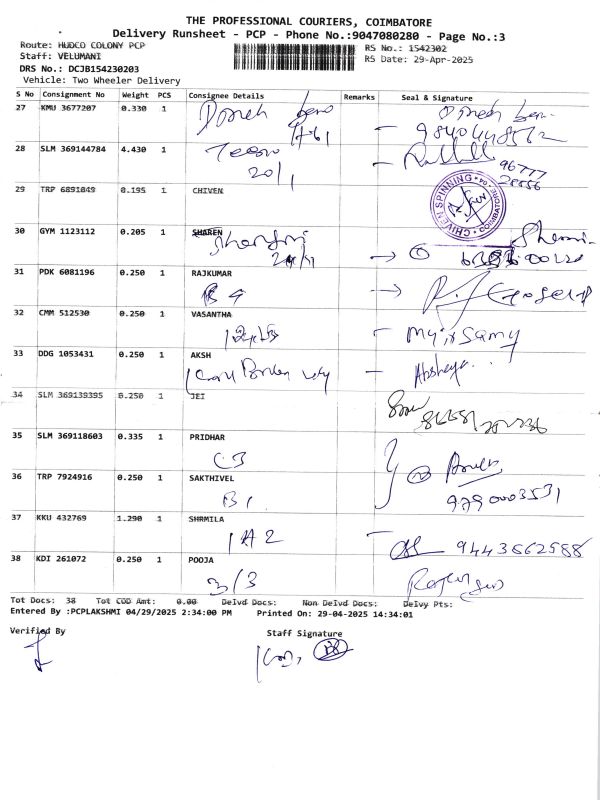 THE PROFESSIONAL COURIERS, COIMBATORE
Delivery Runsheet - PCP - Phone No.:9047080280 - Page No.:3
Route: HUDCO COLONY PCP
RS No.: 1542302
Staff: VELUMANI
RS Date: 29-Apr-2025
DRS No.: DCJB154230203
Vehicle: Two Wheeler Delivery
S No Consignment No Weight PCS Consignee Details Remarks Seal & Signature
27 KMU 3677207 0.330 1
28 SLM 369144784 4.430 1
20/1
29 TRP 6891849 0.195 1 CHIVEN
CHIVEN SPINNING COIMBATORE
30 GYM 1123112 0.205 1 SHAREN
31 PDK 6081196 0.250 1 RAJKUMAR
32 CMM 512530 0.250 1 VASANTHA
33 DDG 1053431 0.250 1 AKSH
34 SLM 369139395 0.250 1 JEI
35 SLM 369118603 0.335 1 PRIDHAR
C3
36 TRP 7924916 0.250 1 SAKTHIVEL
B1
9790003531
37 KKU 432769 1.290 1 SHRMILA
A2 9443662588
38 KDI 261072 0.250 1 POOJA
3/3
Tot Docs: 38 Tot COD Amt: 0.00 Delvd Docs: Non Delvd Docs: Delvy Pts:
Entered By :PCPLAKSHMI 04/29/2025 2:34:00 PM Printed On: 29-04-2025 14:34:01
Verified By
Staff Signature